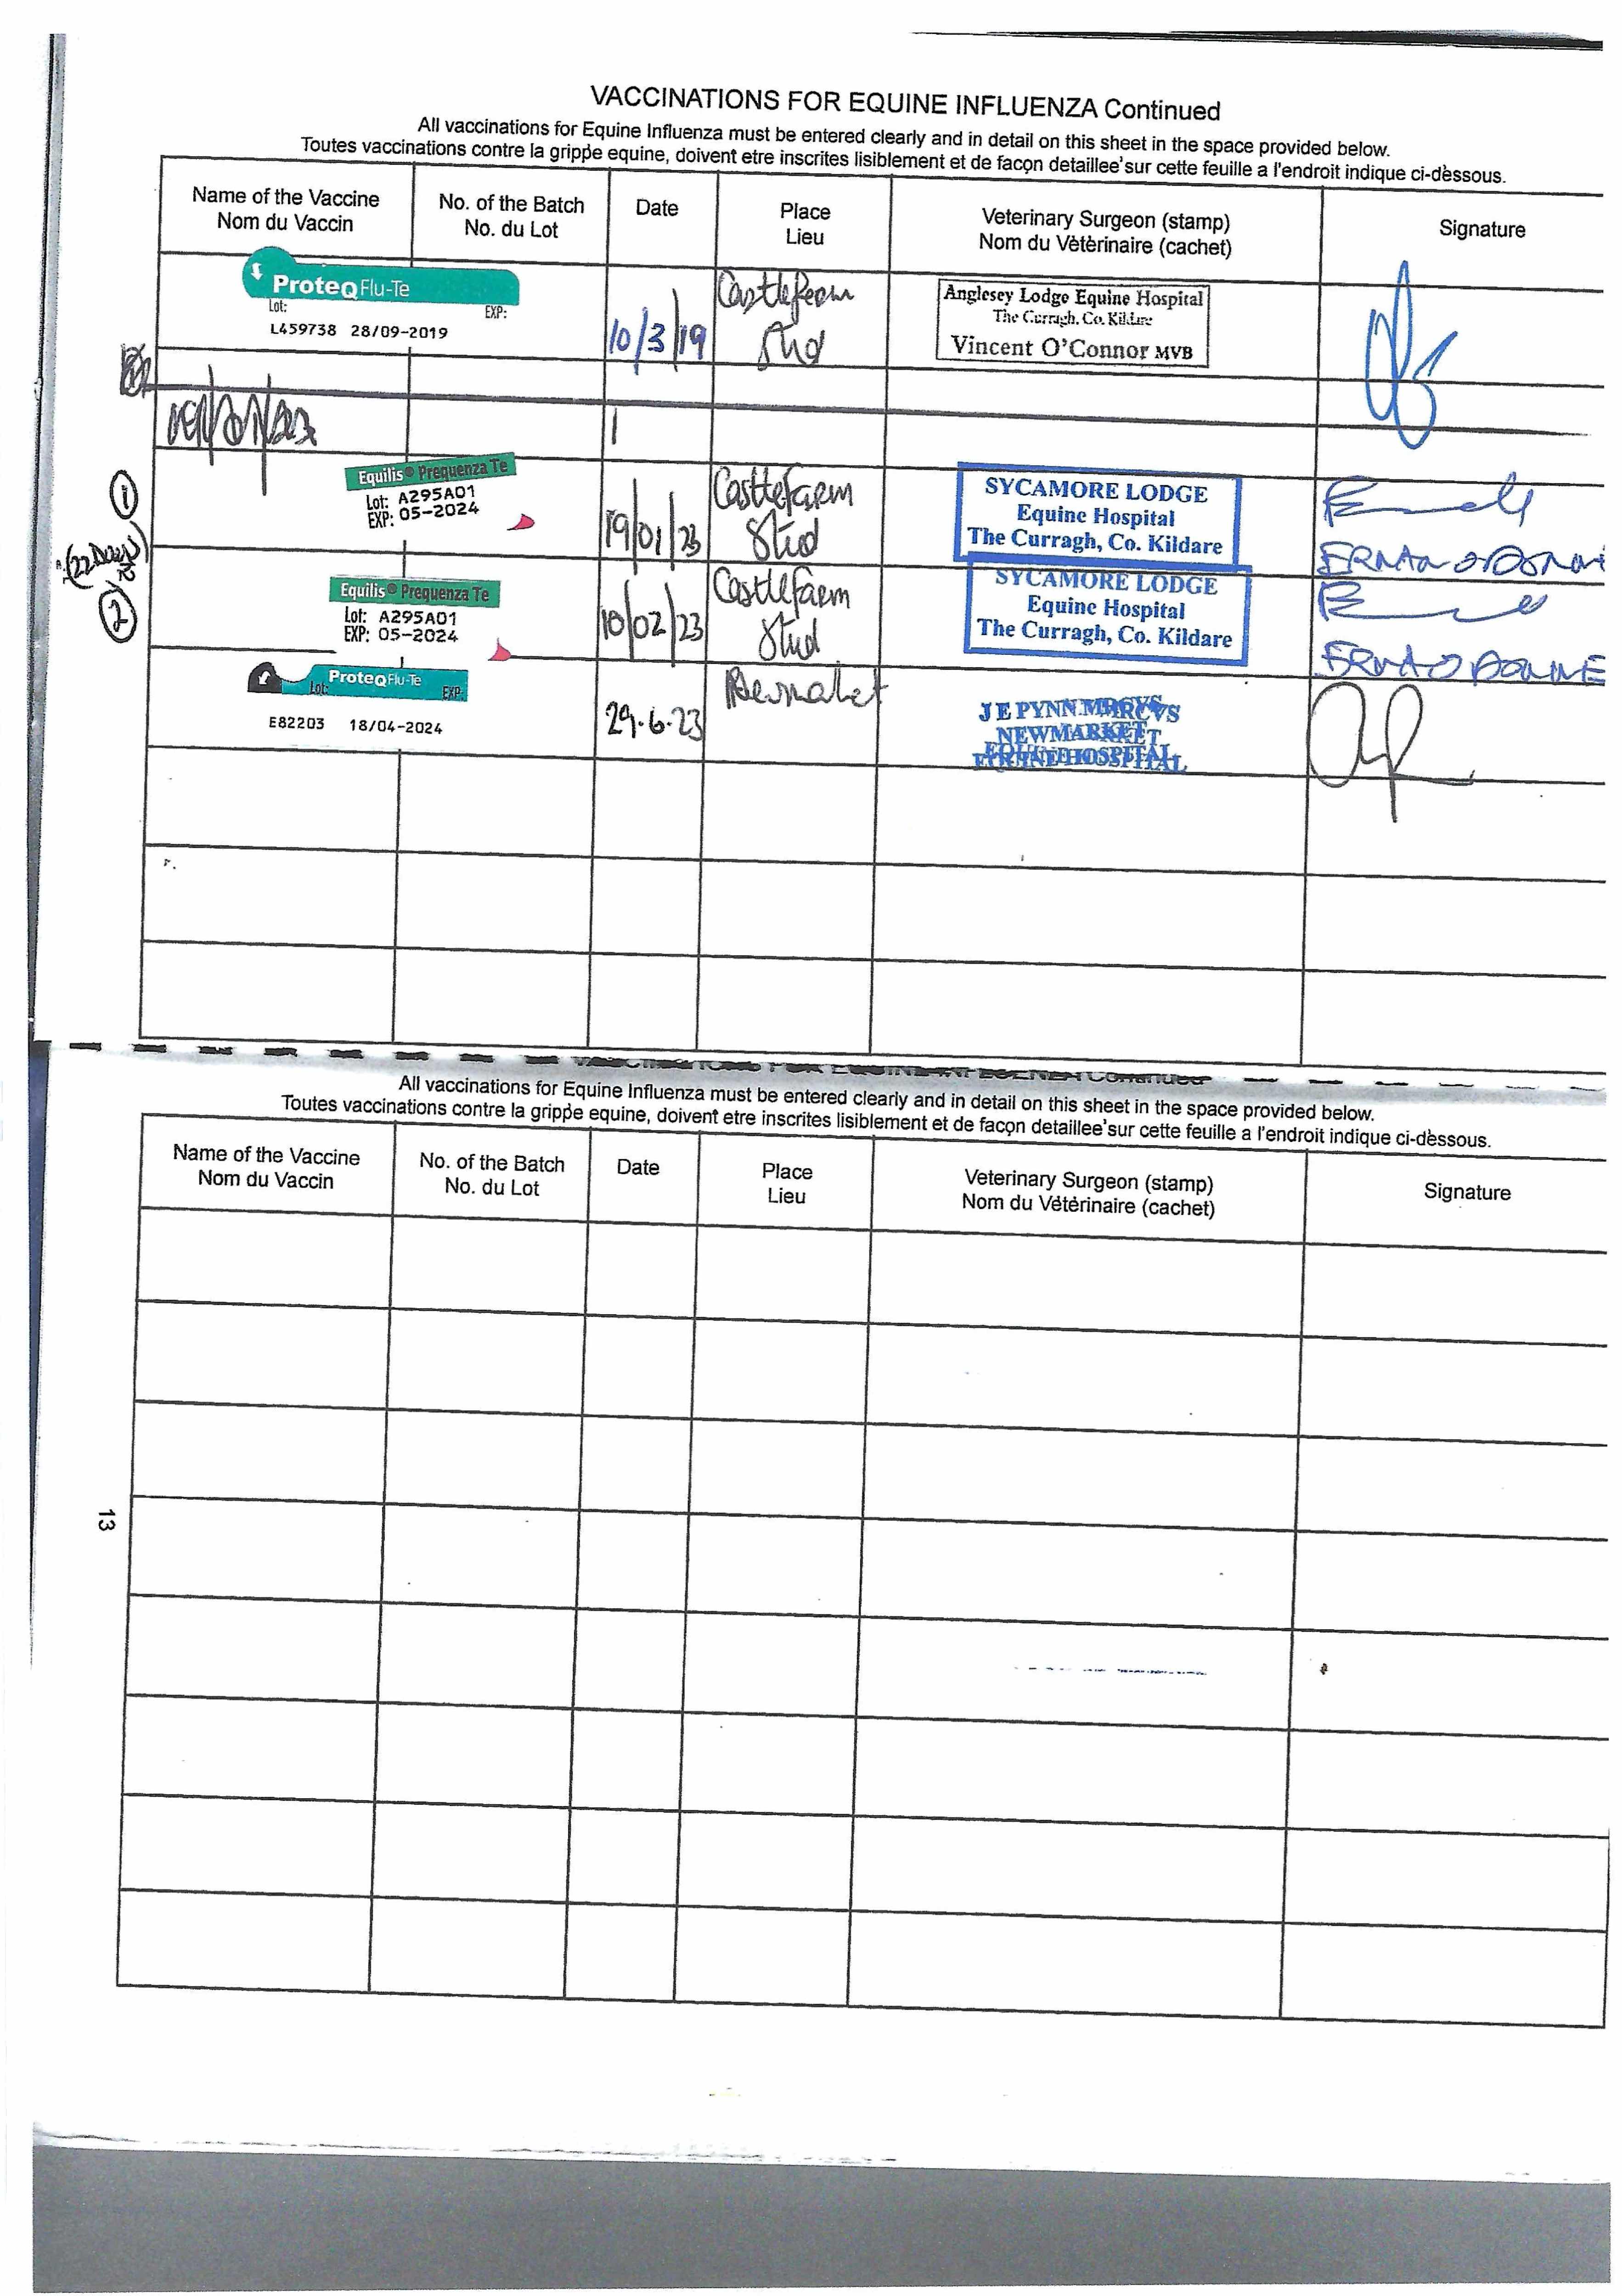 VACCINATIONS FOR EQUINE INFLUENZA Continued
All vaccinations for Equine Influenza must be entered clearly and in detail on this sheet in the space provided below.
Toutes vaccinations contre la grippe equine, doivent etre inscrites lisiblement et de façon detaillee'sur cette feuille a l'endroit indique ci-dèssous.
Name of the Vaccine No. of the Batch Date Place Veterinary Surgeon (stamp) Signature
Nom du Vaccin No. du Lot Lieu Nom du Vètèrinaire (cachet)
ProteqFlu-Te
Lot: EXP:
L459738 28/09-2019
10/3/19
Castlefarm
Stud
Anglesey Lodge Equine Hospital
The Curragh, Co. Kildare
Vincent O'Connor MVB
①
Equilis® Prequenza Te
Lot: A295A01
EXP: 05-2024
19/01/23
Castlefarm
Stud
SYCAMORE LODGE
Equine Hospital
The Curragh, Co. Kildare
(22 Days)
②
Equilis® Prequenza Te
Lot: A295A01
EXP: 05-2024
10/02/23
Castlefarm
Stud
SYCAMORE LODGE
Equine Hospital
The Curragh, Co. Kildare
ProteqFlu-Te
Lot: EXP:
E82203 18/04-2024
29.6.23
J E PYNN MRCVS
NEWMARKET
EQUINE HOSPITAL
VACCINATIONS FOR EQUINE INFLUENZA Continued
All vaccinations for Equine Influenza must be entered clearly and in detail on this sheet in the space provided below.
Toutes vaccinations contre la grippe equine, doivent etre inscrites lisiblement et de façon detaillee'sur cette feuille a l'endroit indique ci-dèssous.
Name of the Vaccine No. of the Batch Date Place Veterinary Surgeon (stamp) Signature
Nom du Vaccin No. du Lot Lieu Nom du Vétèrinaire (cachet)
13